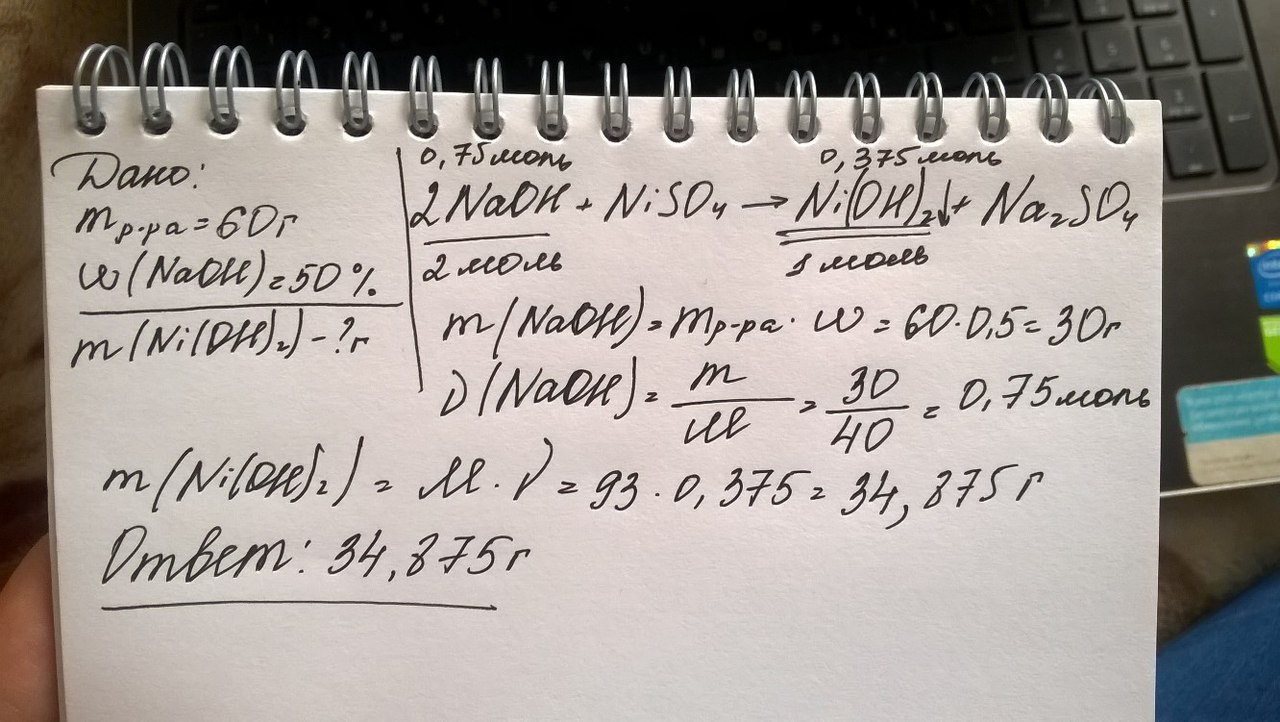 Дано:
mр-ра = 60г
ω(NaOH) = 50%
m(Ni(OH)₂) - ? г
0,75 моль 0,375 моль
2NaOH + NiSO₄ → Ni(OH)₂↓ + Na₂SO₄
2 моль 1 моль
m(NaOH) = mр-ра · ω = 60 · 0,5 = 30г
ν(NaOH) = m/M = 30/40 = 0,75 моль
m(Ni(OH)₂) = M · ν = 93 · 0,375 = 34,875 г
Ответ: 34,875 г